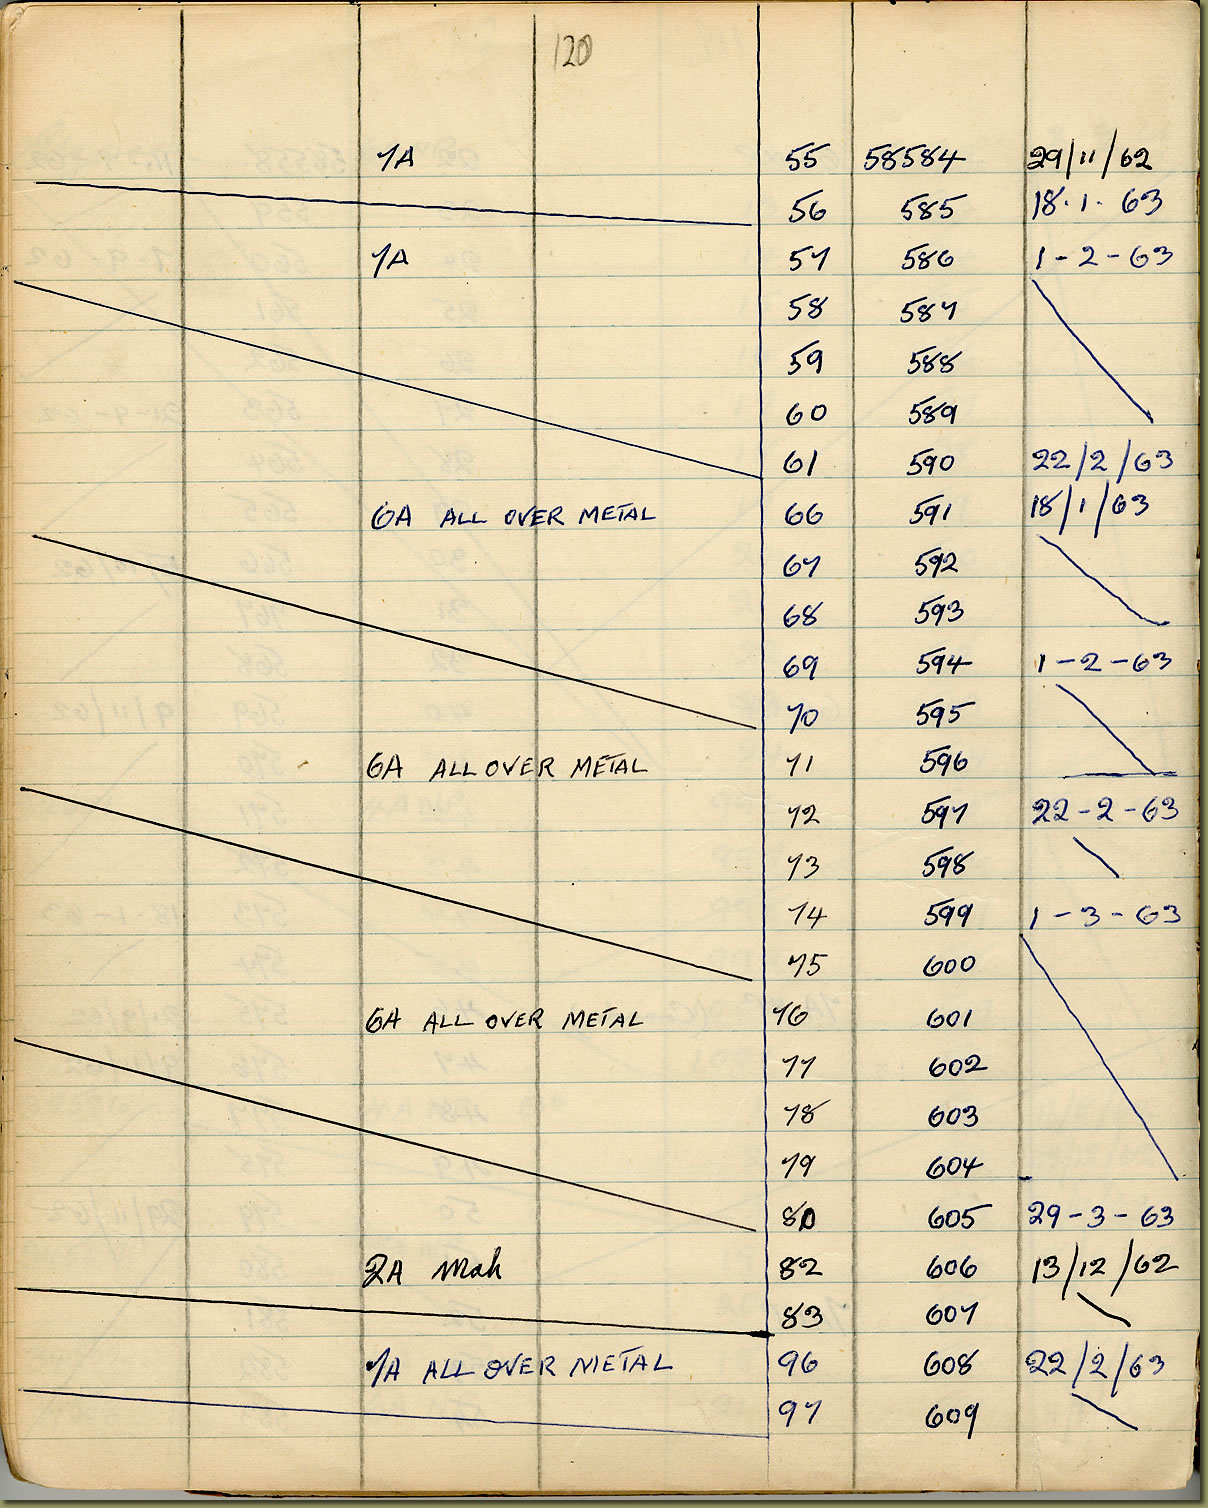 120
7A 55 58584 29/11/62
56 585 18.1. 63
7A 57 586 1-2-63
58 587
59 588
60 589
61 590 22/2/63
6A ALL OVER METAL 66 591 18/1/63
67 592
68 593
69 594 1-2-63
70 595
6A ALL OVER METAL 71 596
72 597 22-2-63
73 598
74 599 1-3-63
75 600
6A ALL OVER METAL 76 601
77 602
78 603
79 604
80 605 29-3-63
2A Mah 82 606 13/12/62
83 607
7A ALL OVER METAL 96 608 22/2/63
97 609